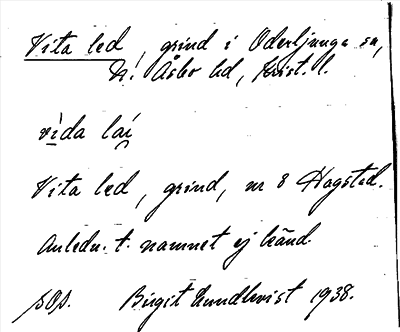 Vita led, grind i Oderljunga sn,
N. Åsbo hd, Krist. l.
vìda laí
Vita led, grind, nr 8 Hagstad.
Anledn. t. namnet ej känd.
Birgit Lundkvist 1938.